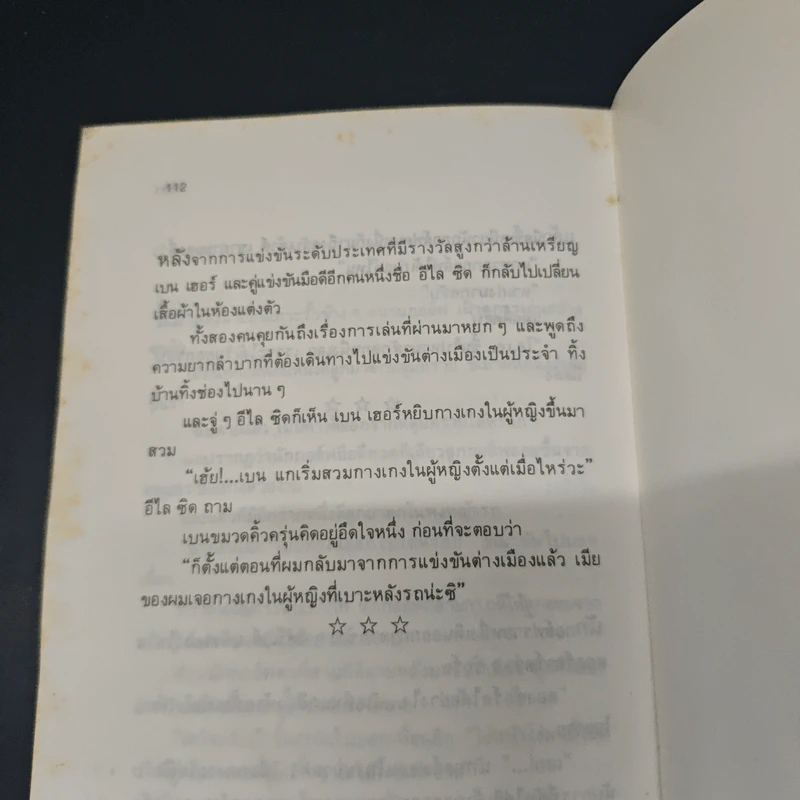 112
หลังจากการแข่งขันระดับประเทศที่มีรางวัลสูงกว่าล้านเหรียญ
เบน เฮอร์ และคู่แข่งขันมือดีอีกคนหนึ่งชื่อ อีไล ซิด ก็กลับไปเปลี่ยน
เสื้อผ้าในห้องแต่งตัว
ทั้งสองคนคุยกันถึงเรื่องการเล่นที่ผ่านมาหยก ๆ และพูดถึง
ความยากลำบากที่ต้องเดินทางไปแข่งขันต่างเมืองเป็นประจำ ทิ้ง
บ้านทิ้งช่องไปนาน ๆ
และจู่ ๆ อีไล ซิดก็เห็น เบน เฮอร์หยิบกางเกงในผู้หญิงขึ้นมา
สวม
“เฮ้ย!...เบน แกเริ่มสวมกางเกงในผู้หญิงตั้งแต่เมื่อไหร่วะ”
อีไล ซิด ถาม
เบนขมวดคิ้วครุ่นคิดอยู่อึดใจหนึ่ง ก่อนที่จะตอบว่า
“ก็ตั้งแต่ตอนที่ผมกลับมาจากการแข่งขันต่างเมืองแล้ว เมีย
ของผมเจอกางเกงในผู้หญิงที่เบาะหลังรถน่ะซิ”
☆ ☆ ☆